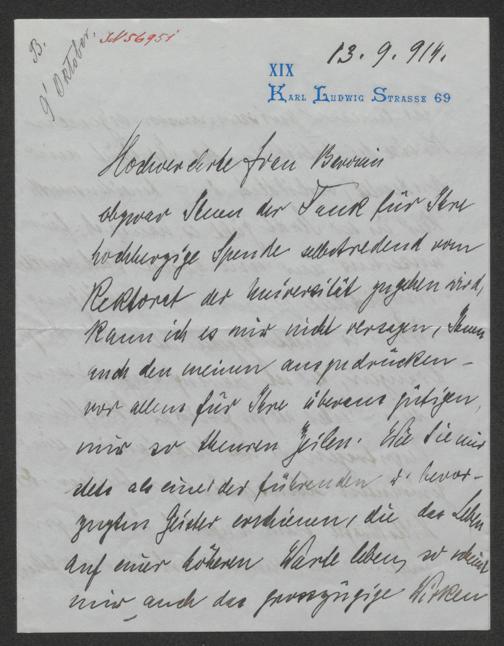 B.
9' Oktober.
IN 56951
13. 9. 914.
XIX
KARL LUDWIG STRASSE 69
Hochverehrte Frau Baronin
obzwar Ihnen der Dank für Ihre
hochherzige Spende selbstredend vom
Rektorat der Universität zugehen wird,
kann ich es mir nicht versagen, Ihnen
auch den meinen auszudrücken –
vor allem für Ihre überaus gütigen,
mir so theuren Zeilen. Wie Sie mir
stets als einer der führenden u. bevor-
zugten Geister erschienen, die das Leben
auf einer höheren Warte leben, so scheint
mir auch das grosszügige Wirken